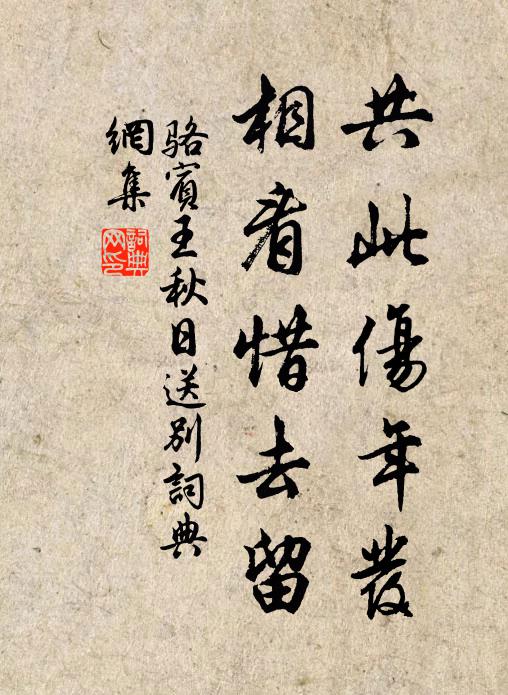 共此傷年發
相看惜去留
骆賓王秋日送別詞典
網集
詞典网印